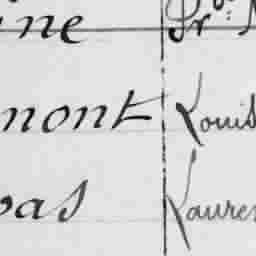 ine Pr
mont Louis
vas Lauren